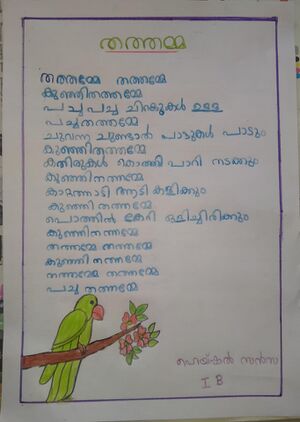 തത്തമ്മ
തത്തമ്മേ തത്തമ്മേ
കുഞ്ഞിതത്തമ്മേ
പച്ച പച്ച ചിറകുകൾ ഉള്ള
പച്ചതത്തമ്മേ
ചുവന്ന ചുണ്ടാൽ പാട്ടുകൾ പാടും
കുഞ്ഞിതത്തമ്മേ
കതിരുകൾ കൊത്തി പാറി നടക്കും
കുഞ്ഞിതത്തമ്മേ
ആടി കളിക്കും
കുഞ്ഞി തത്തമ്മേ
പൊത്തിൽ കേറി ഒളിച്ചിരിക്കും
കുഞ്ഞിതത്തമ്മേ
തത്തമ്മേ തത്തമ്മേ
കുഞ്ഞി തത്തമ്മേ
തത്തമ്മേ തത്തമ്മേ
പച്ച തത്തമ്മേ
I B